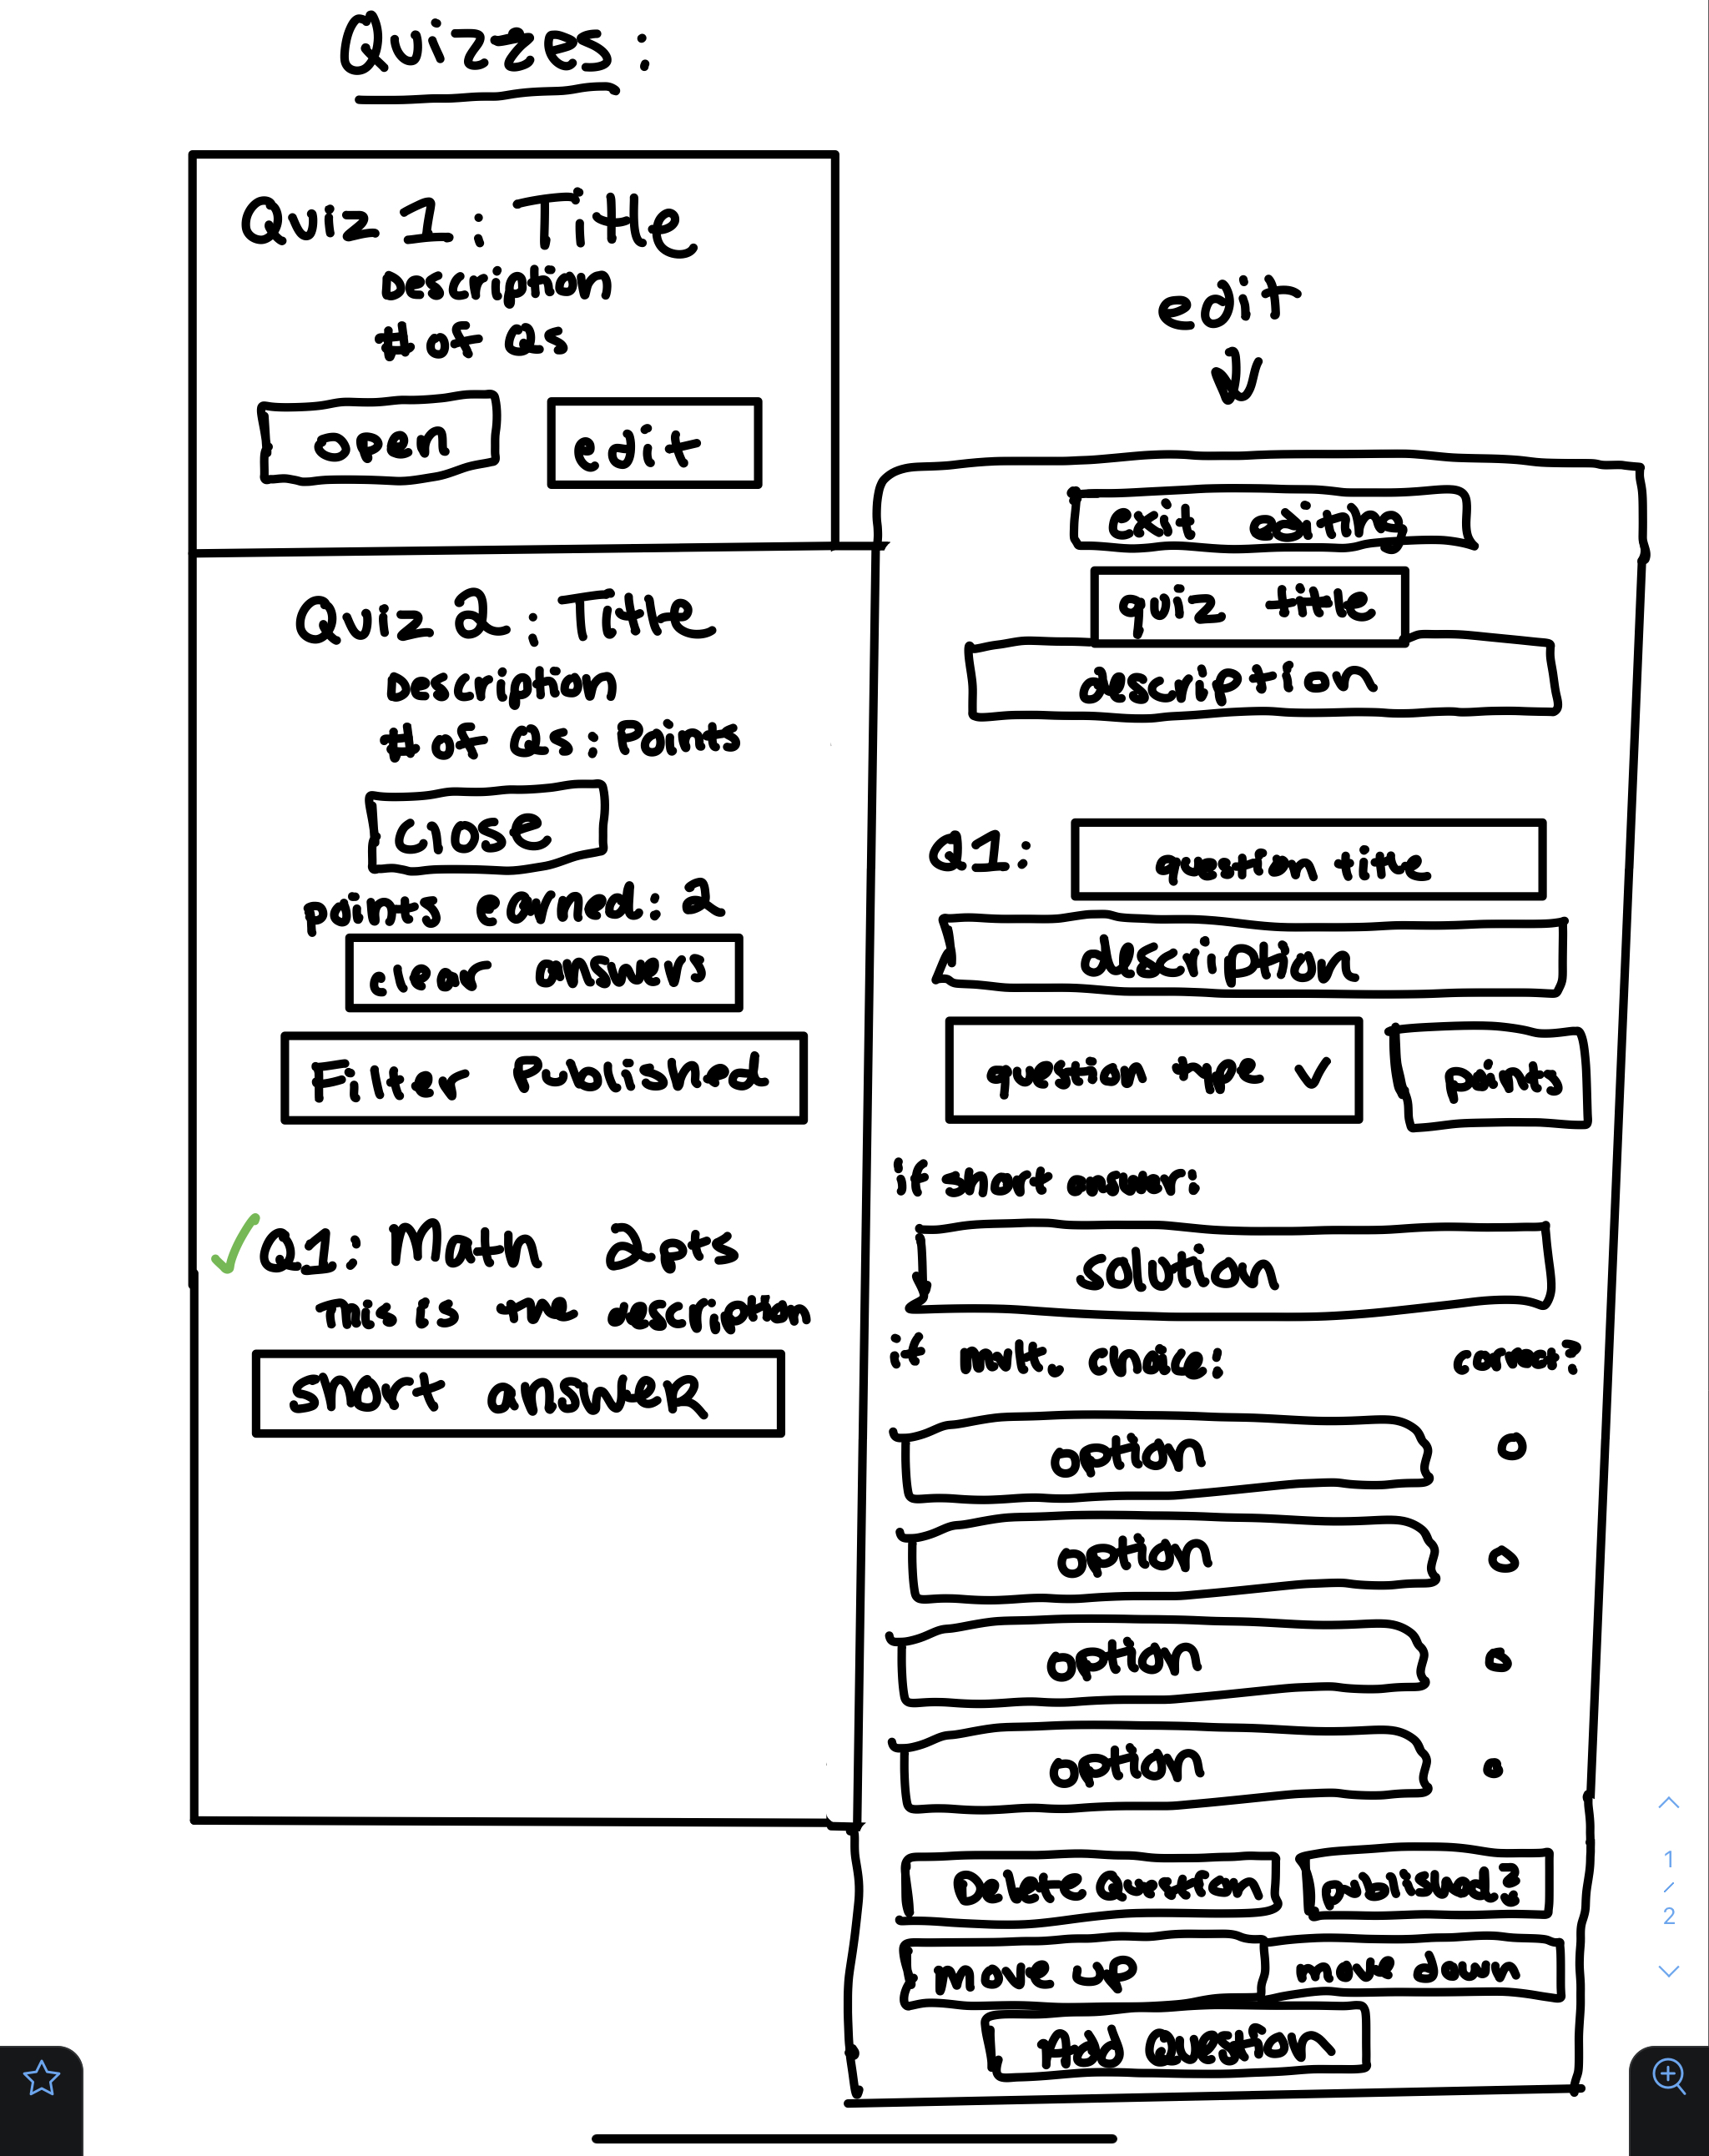 Quizzes:
Quiz 1: Title
Description
# of Qs
open
edit
Quiz 2: Title
Description
# of Qs: Points
close
points earned: 2
clear answers
Filter Published
Q1: Math 2pts
This is the description
short answer
edit
exit editing
quiz title
description
Q1: question title
description
question type
points
if short answer:
solution
if mult. choice: correct?
option
option
option
option
Delete Question
published?
move up
move down
Add Question
1
/
2